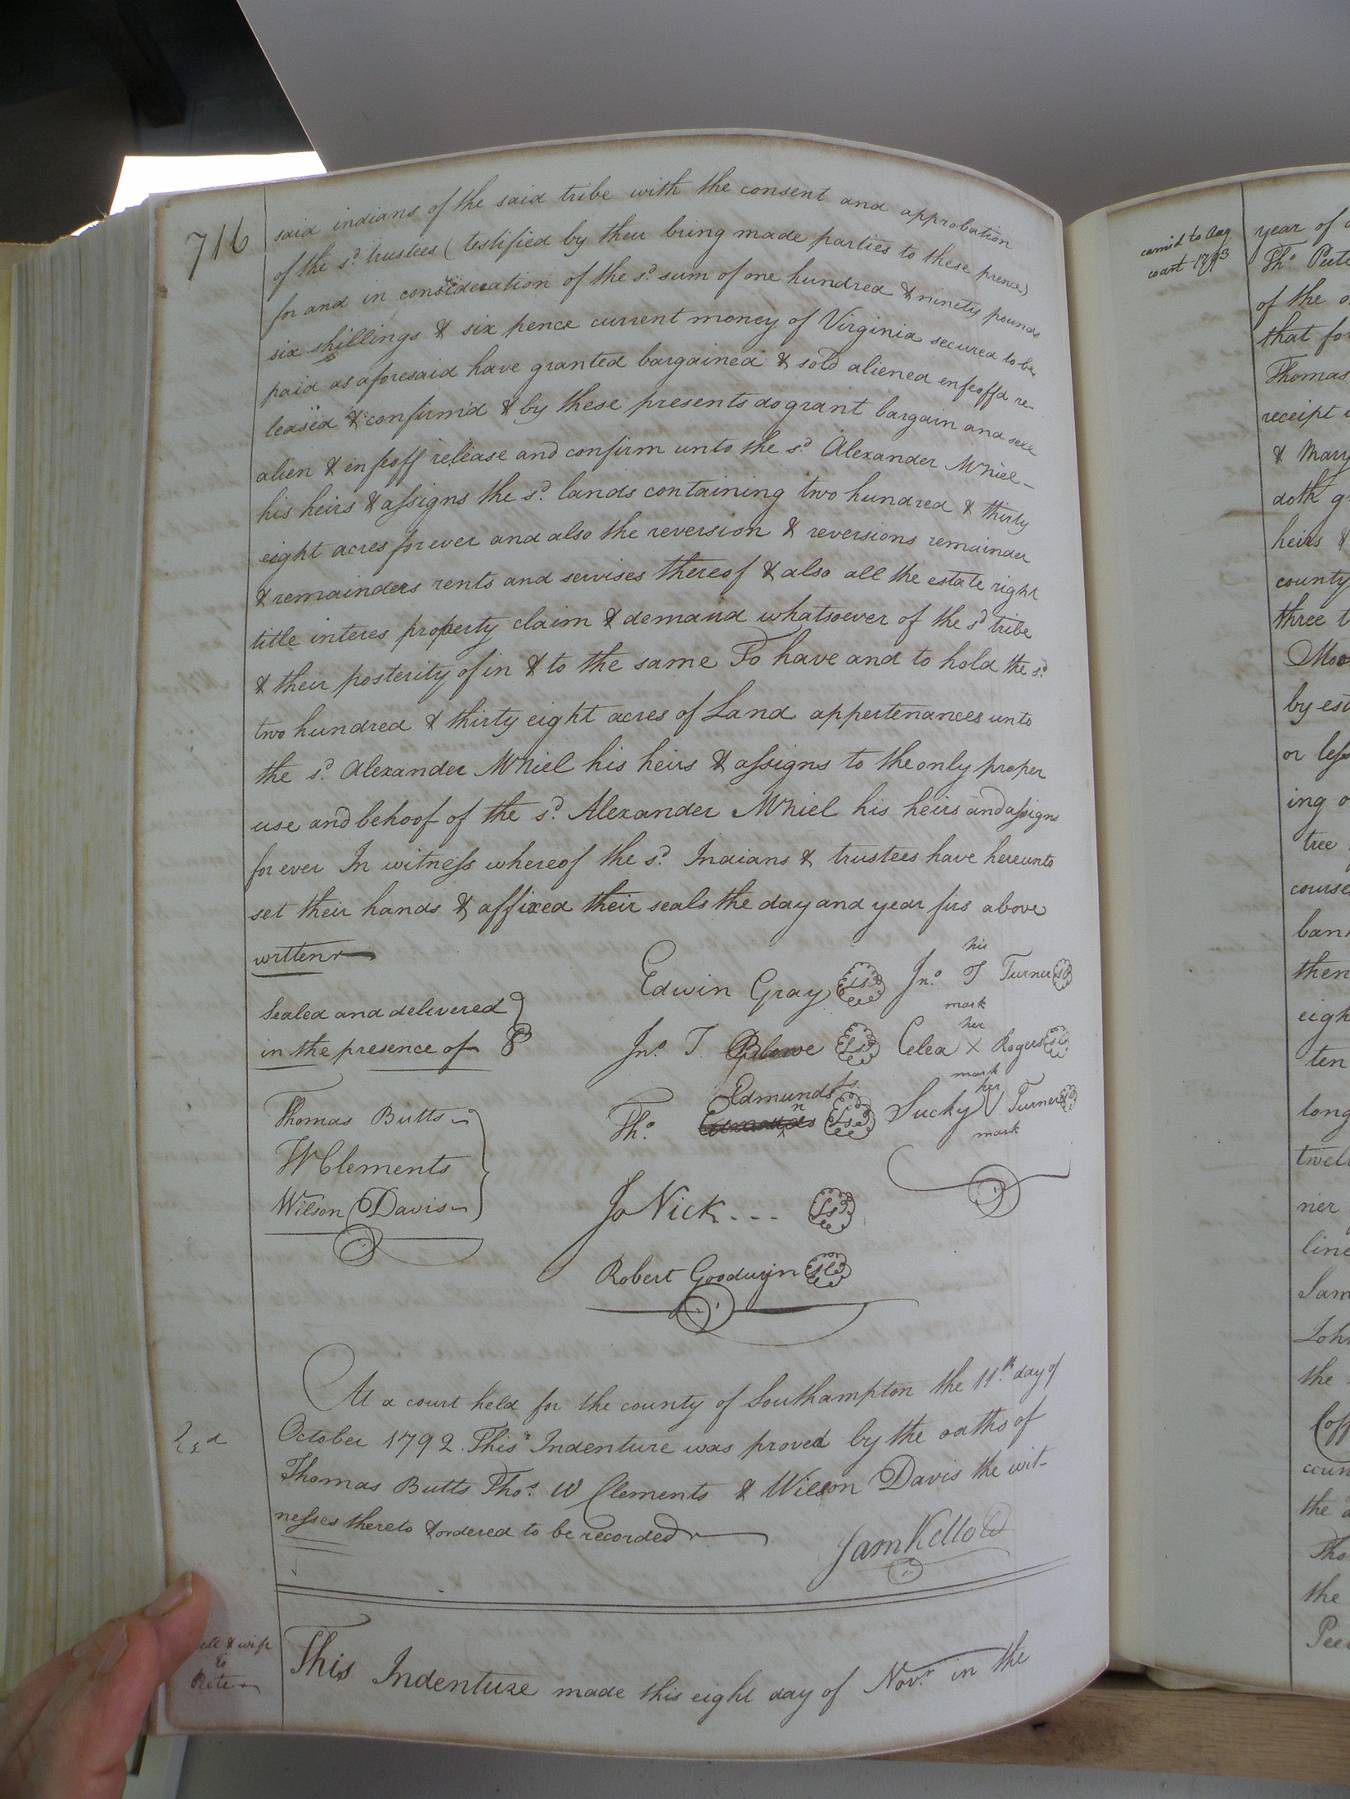 716
said indians of the said tribe with the consent and approbation
of the sd. trustees (testified by their being made parties to these presnce)
for and in consideration of the sd. sum of one hundred & ninety pounds
six shillings & six pence current money of Virginia secured to be
paid as aforesaid have granted bargained & sold aliened enfeoff'd re-
leased & confirm'd & by these presents do grant bargain and sell
alien & enfeoff release and confirm unto the sd. Alexander Mcniel-
his heirs & assigns the sd. lands containing two hundred & thirty
eight acres forever and also the reversion & reversions remainder
& remainders rents and servises thereof & also all the estate right
title interes property claim & demand whatsoever of the sd. tribe
& their posterity of in & to the same To have and to hold the sd.
two hundred & thirty eight acres of Land appertenances unto
the sd. Alexander Mcniel his heirs & assigns to the only proper
use and behoof of the sd. Alexander Mcniel his heirs and assigns
forever In witness whereof the sd. Indians & trustees have hereunto
set their hands & affixed their seals the day and year firs above
written
Sealed and delivered
in the presence of
Thomas Butts
W Clements
Wilson Davis
Edwin Gray Ls.
Jno. T. Blowe Ls.
Tho. Edmunds Ls.
Jo Nick--- Ls.
Robert Goodwyn Ls.
his
Jno. T Turner Ls.
mark
her
Celea X Rogers Ls.
mark
her
Sucky V Turner Ls.
mark
At a court held for the county of Southampton the 11th. day of
October 1792. This Indenture was proved by the oaths of
Thomas Butts Thos. W Clements & Wilson Davis the wit-
nesses thereto & ordered to be recorded
Sam Kello
& wife
to
This Indenture made this eight day of Novr. in the
court 1793
year of
Tho.
of the
that for
Thomas
receipt
& Mary
doth
heirs &
county
three
by
or less
tree
course
bank
then
ten
long
twelve
ner
line
the
the
the